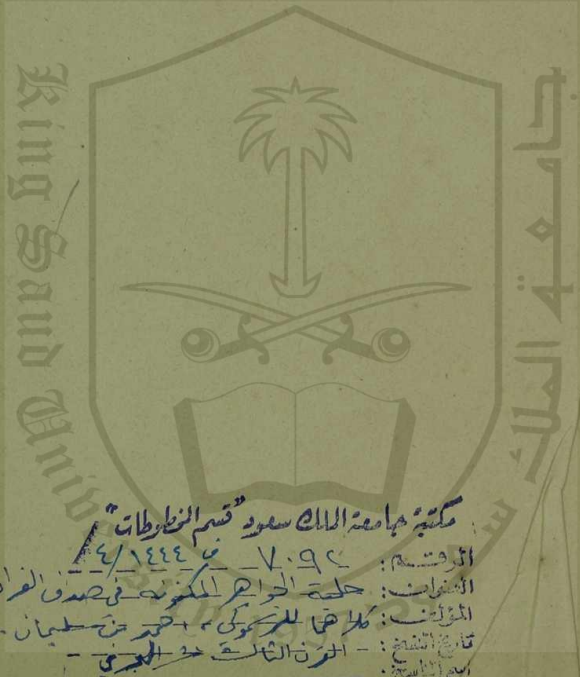 King Saud Univ
جامعة الملك س
مكتبة جامعة الملك سعود "قسم المخطوطات"
الرقم: ٧٠٩٢ ف ١٤٤٤/٤
العنوان: حلية الجواهر المكنونة في صدف الفرا
المؤلف: كلاهما أحمد بن سليمان
تاريخ النسخ: القرن الثالث عشر الهجري
اسم الناسخ: